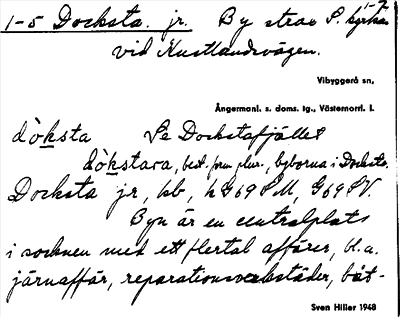 1-5 Docksta. jr. By strax S. kyrkan 1-2
vid Kustlandsvägen.
Vibyggerå sn,
Ångermanl. s. doms. tg., Västernorrl. l.
dòksta Se Dockstafjället
dòkstara, best. form plur., byborna i Docksta.
Docksta jr, kb, hG69SM, G69SV.
Byn är en centralplats
i socknen med ett flertal affärer, bl.a.
järnaffär, reparationsverkstäder, båt-
Sven Hiller 1948